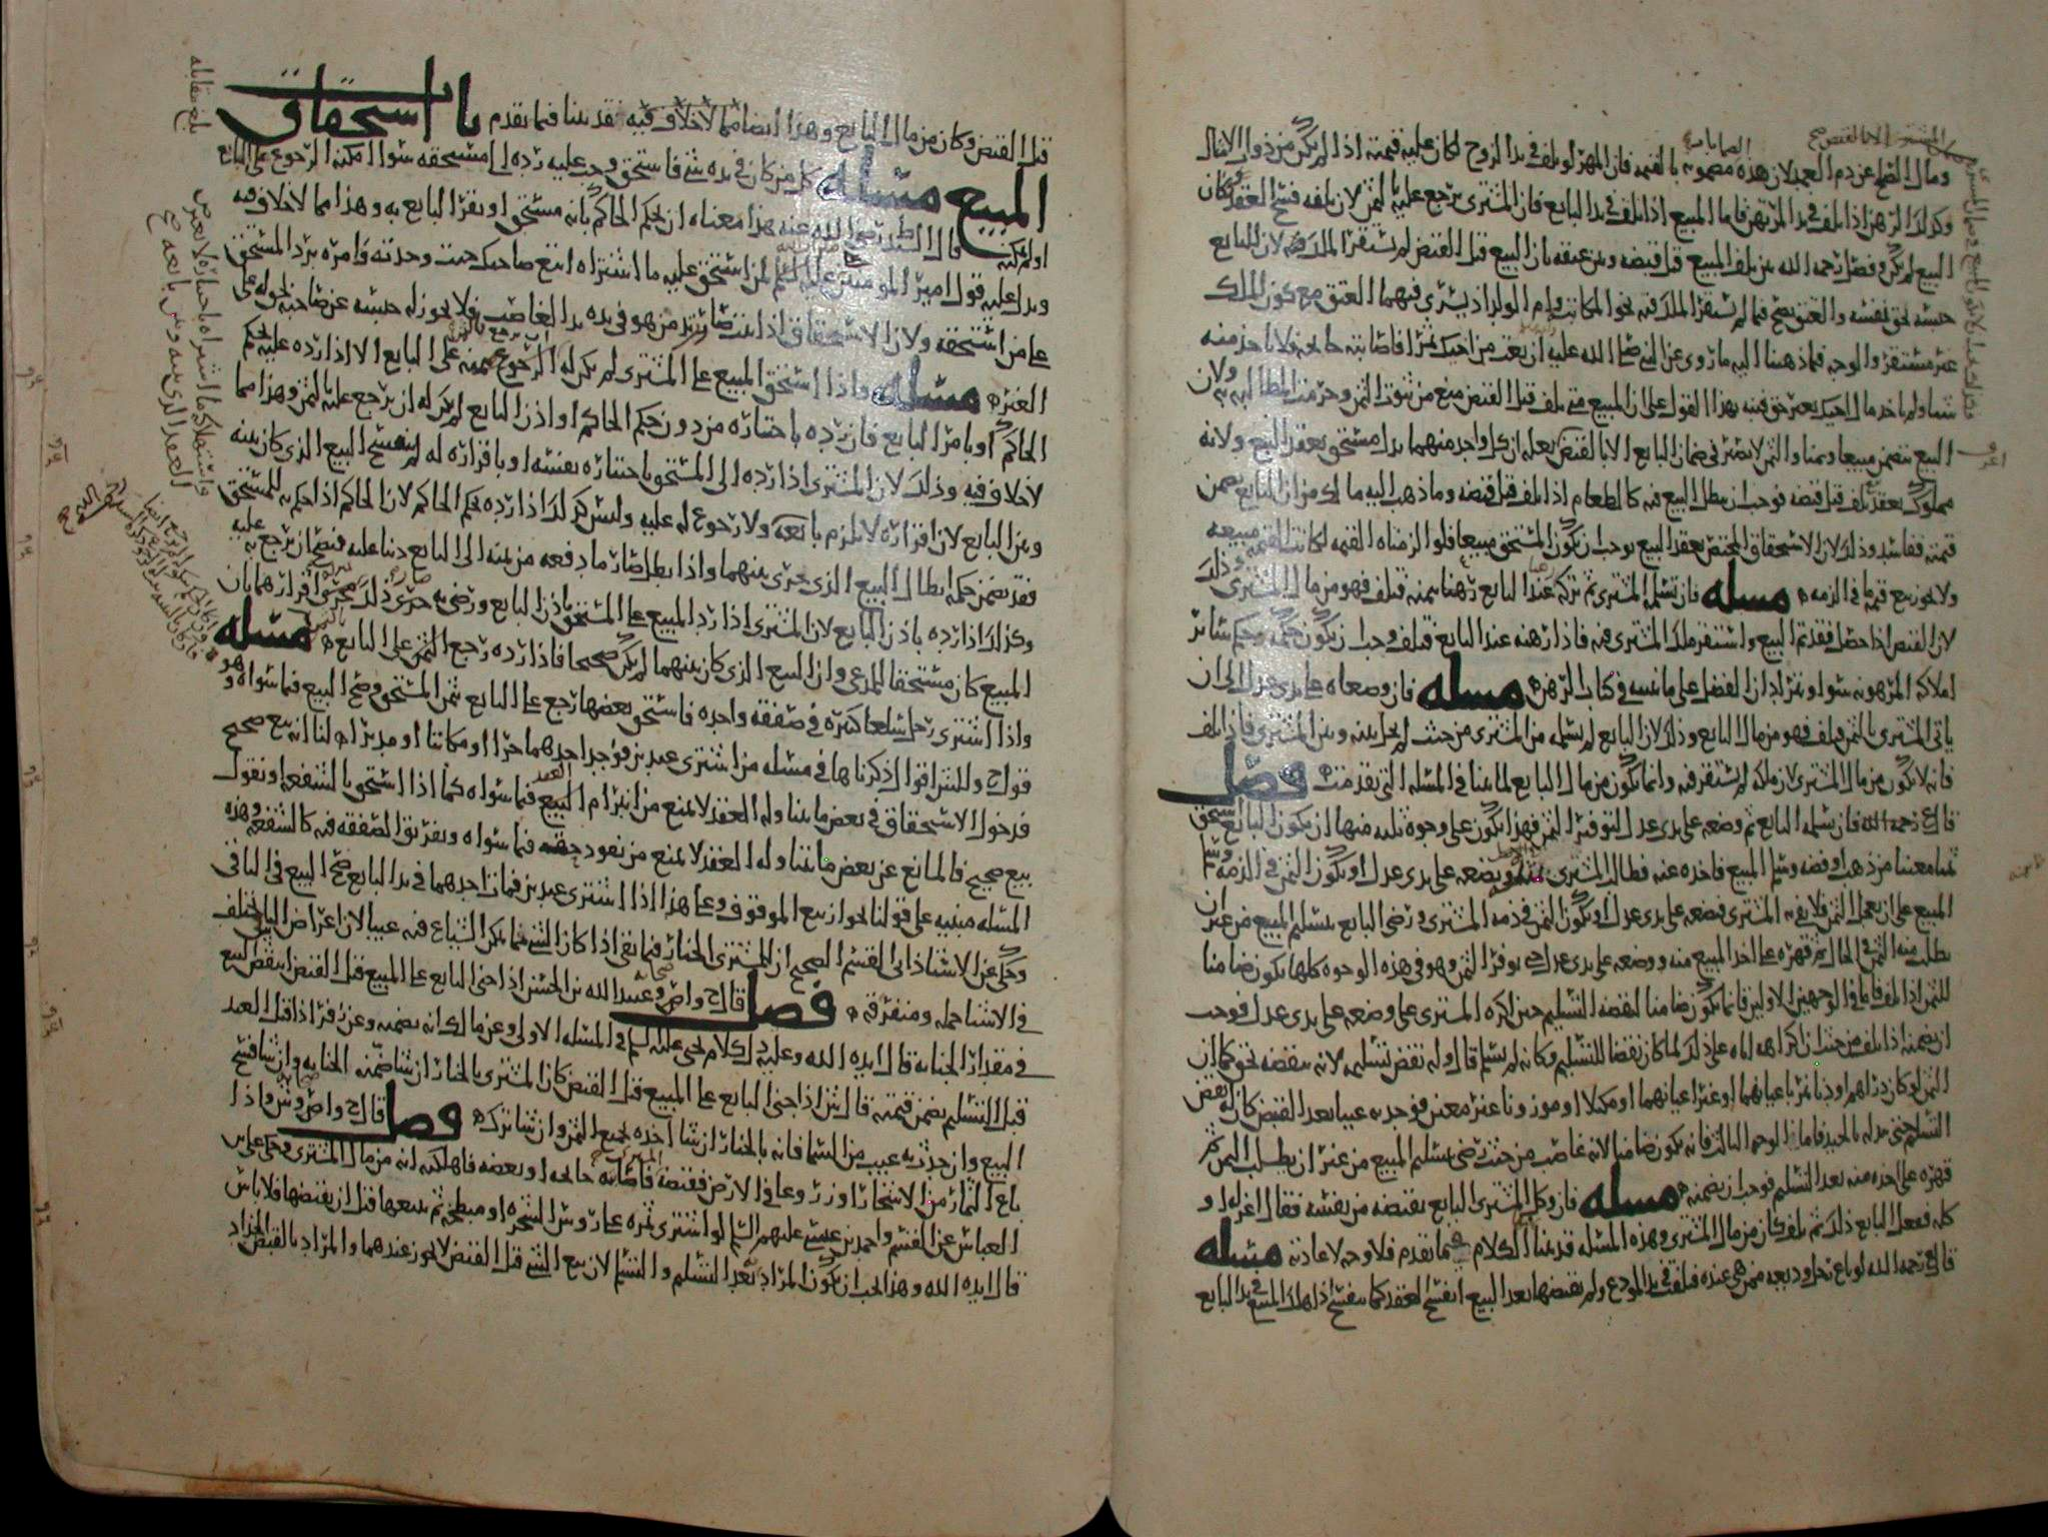 ومال الصلح عن دم العمد لان هذه مضمونه بالقيمه فان المهر لو تلف في يد الزوج لكان عليه قيمته اذا لم يكن من ذوات الامثال
وكذلك الرهن اذا تلف في يد المرتهن فاما المبيع اذا تلف في يد البايع فان المشتري يرجع عليه بالثمن لان بتلفه فسخ العقد وكان
البيع لم يكن وفصل رحمه الله بين تلف المبيع قبل قبضه وبين عتقه بان البيع قبل القبض لم يستقر الملك فيه لان للبايع
حبسه لحق نفسه والعتق يصح فيما لم يستقر الملك فيه نحو المكاتب وام الولد اذ يسري فيهما العتق مع كون الملك
غير مستقر والوجه فيما ذهبنا اليه ما روي عن النبي صلى الله عليه ان بعت من اخيك ثمرا فاصابته جايحه فلا تاخذ منه
شيا ولم تاخذ مال اخيك بغير حق فنبه بهذا القول على ان المبيع متى تلف قبل القبض منع من ثبوت الثمن وحرمت المطالبه به ولان
البيع يتضمن مبيعا وثمنا والثمن لا يصير في ضمان البايع الا بالقبض يعلم ان كل واحد منهما بدل مستحق بعقد البيع ولانه
مملوك بعقد تلف قبل قبضه فوجب ان يبطل البيع فيه كالطعام اذا تلف قبل قبضه وما ذهب اليه مالك من ان البايع يضمن
قيمته ففاسد وذلك لان الاستحقاق المختص بعقد البيع يوجب ان يكون المستحق مبيعا فلو الزمناه القيمه لكانت القيمه مبيعه
ولا يجوز بيع قيمه ما في الذمه مسله فان تسلمه المشتري ثم تركه عند البايع رهنا بثمنه فتلف فهو من مال المشتري وذلك
لان القبض اذا حصل فقد تم البيع واستقر ملك المشتري فيه فاذا رهنه عند البايع فتلف وجب ان يكون حكمه حكم ساير
املاكه المرهونه سوا وتراد ان الفضل على ما نبينه في كتاب الرهن مسله فان وضعاه على يدي عدل الى ان
ياتي المشتري بالثمن فتلف فهو من مال البايع وذلك لان البايع لم يسلمه من المشتري من حيث لم يخل بينه وبين المشتري فاذا تلف
فانه لا يكون من مال المشتري لان ملكه لم يستقر فيه وانما يكون من مال البايع لما بينا في المسله التي تقدمت فصل
قال رحمه الله فان تسلمه البايع ثم وضعه على يدي عدل لتوفير الثمن فهذا يكون على وجوه ثلثه منها ان يكون البايع يستحق
ثمنا معينا من ذهب او فضه وسلم المبيع فاخذه عنه فطالب المشتري بوضعه على يدي عدل او يكون الثمن في الذمه وسلم
المبيع على ان يعجل الثمن فلا يفي به المشتري فيضعه على يدي عدل او يكون الثمن في ذمه المشتري ورضي البايع بتسليم المبيع من غير ان
يطلب منه الثمن في الحال ثم قهره على اخذ المبيع منه ووضعه على يدي عدل حتى يوفر الثمن وهو في هذه الوجوه كلها يكون ضامنا
للثمن اذا تلف فاما في الوجهين الاولين فانما يكون ضامنا لنقضه التسليم حين اكره المشتري على وضعه على يدي عدل فوجب
ان يضمنه اذا تلف من حيث ان اكراهه اياه على ذلك لما كان نقضا للتسليم وكانه لم يسلم قال وله نقض تسليمه لانه ينقضه بحق كما ان
الثمن لو كان دراهم او دنانير باعيانهما او غير اعيانهما او مكيلا او موزونا غير معين فوجد به عيبا بعد القبض كان له نقض
التسليم حتى يبدله بالجيد فاما في الوجه الثالث فانه يكون ضامنا لانه غاصب من حيث رضي بتسليم المبيع من غير ان يطلب الثمن ثم
قهره على اخذه منه بعد التسليم فوجب ان يضمنه مسله فان وكل المشتري البايع بقبضه من نفسه فقال اعزله او
كله ففعل البايع ذلك ثم تلف كان من مال المشتري وهذه المسله قد بينا الكلام فيما تقدم فلا وجه لاعادته مسله
قال رحمه الله لو باع رجل وديعه ممن هي عنده فتلفت في يد المودع ولم يقبضها بعد البيع انفسخ العقد كما ينفسخ اذا هلك المبيع في يد البايع
قبل القبض وكان من مال البايع وهذا ايضا مما لا خلاف فيه وقد بينا فيما تقدم باب استحقاق
المبيع مسله كل من كان في يده شي فاستحق وجب عليه رده الى مستحقه سوا امكنه الرجوع على البايع
او لم يمكنه قال السيد رضي الله عنه هذا معناه ان يحكم الحاكم بانه مستحق او يقر البايع به وهذا مما لا خلاف فيه
ويدل عليه قول امير المومنين عليه السلم لمن استحق عليه ما اشتراه اتبع صاحبك حيث وجدته وامره برد المستحق
على من استحقه ولان الاستحقاق اذا ثبت صار يد من هو في يده يد الغاصب فلا يجوز له حبسه عن صاحبه نحوله على
الغير مسله واذا استحق المبيع على المشتري لم يكن له الرجوع بثمنه على البايع الا اذا رده عليه بحكم
الحاكم او بامر البايع فان رده باختياره من دون حكم الحاكم او اذن البايع لم يكن له ان يرجع عليه بالثمن وهذا مما
لا خلاف فيه وذلك لان المشتري اذا رده الى المستحق باختياره بنفسه او باقراره له لم ينفسخ البيع الذي كان بينه
وبين البايع لان اقراره لا يلزم بايعه ولا رجوع له عليه وليس كذلك اذا رده بحكم الحاكم لان الحاكم اذا حكم به للمستحق
فقد تضمن حكمه ابطال البيع الذي جرى بينهما واذا بطل صار ما دفعه من ثمنه الى البايع دينا عليه فيصح ان يرجع به عليه
وكذلك اذا رده باذن البايع لان المشتري اذا رد المبيع على المستحق باذن البايع ورضي به جرى ذلك مجرى اقرارهما بان
المبيع كان مستحقا للمدعي وان البيع الذي كان بينهما لم يكن صحيحا فاذا رده رجع بالثمن على البايع مسله
واذا اشترى رجل سلعا كثيره في صفقه واحده فاستحق بعضها رجع على البايع بثمن المستحق وصح البيع فيما سواه وهو
قول وللش اقوال ذكرناها في مسله من اشترى عبدين فوجد احدهما حرا او مكاتبا او مدبرا لنا انه بيع صحيح
فدخول الاستحقاق في بعض ما يتناوله العقد لا يمنع من انبرام البيع فيما سواه كما اذا استحق بالشفعه او نقول
بيع صحيح فالمانع عن بعض ما يتناوله العقد لا يمنع من نفود حقه فيما سواه وتفريق الصفقه فيه كالشفعه وهذه
المسله مبنيه على قولنا بجواز بيع الموقوف وعلى هذا اذا اشترى عبدين فمات احدهما في يد البايع صح البيع في الباقي
وحكي عن الاستاذ ابي القسم الصحيح ان للمشتري الخيار فيما بقي اذا كان الشي مما يكون الشياع فيه عيبا لان اغراض الناس تختلف
في الاشيا جمله ومتفرقه فصل قال ح واص و عبيد الله بن الحسن اذا جنى البايع على المبيع قبل القبض انتقض البيع
في مقدار الجنايه قال ايده الله وعليه دل كلام يحيى عليه السلم في المسله الاولى وعن مالك انه يضمنه وعن زفر اذا قتل العبد
قبل التسليم يضمن قيمته قال ش اذا جنى البايع على المبيع قبل القبض كان المشتري بالخيار ان شا ضمنه الجنايه وان شا فسخ
البيع وان حدث به عيب من السما فانه بالخيار ان شا اخذه بجميع الثمن وان شا تركه فصل قال ح واص وش واذا
باع الثمار من الاشجار او زروعا في الارض فقبضه فاصابته جايحه او بعضه فاهلكته انه من مال المشتري وحكى علي بن
العباس عن القسم واحمد بن عيسى عليهم السلم لو اشترى ثمره على روس الشجره او مبطخه ثم يبيعها قبل ان يقبضها فلا باس
قال ايده الله وهذا يجب ان يكون المراد بعد التسليم والتسلم لان بيع الشي قبل القبض لا يجوز عندهما والمراد بالقبض الجذاذ
بلغ مقابله